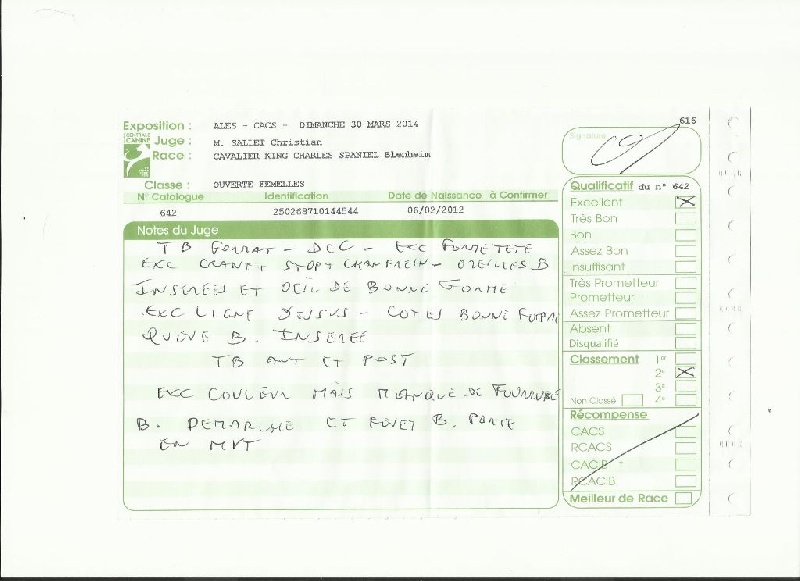 616
Exposition : ALES - CACS - DIMANCHE 30 MARS 2014
CENTRALE CANINE
Juge : M. SALLET Christian
Race : CAVALIER KING CHARLES SPANIEL Blenheim
Classe : OUVERTE FEMELLES
N° Catalogue Identification Date de Naissance à Confirmer
642 250268710144544 06/02/2012
Notes du Juge
TB FORMAT - DEC - EXC FORME TETE
EXC CRANE, STOP, CHANFREIN - OREILLES B
INSEREES ET OEIL DE BONNE FORME
EXC LIGNE DESSUS - COTES BONNE FORME
QUEUE B. INSEREE
TB ANT ET POST
EXC COULEUR MAIS MANQUE DE FOURRURE
B. DEMARCHE ET FOUET B. PORTE
EN MVT
Signature
Qualificatif du n° 642
Excellent
Très Bon
Bon
Assez Bon
Insuffisant
Très Prometteur
Prometteur
Assez Prometteur
Absent
Disqualifié
Classement 1er
2e
3e
Non Classé 4e
Récompense
CACS
RCACS
CACIB
RCACIB
Meilleur de Race